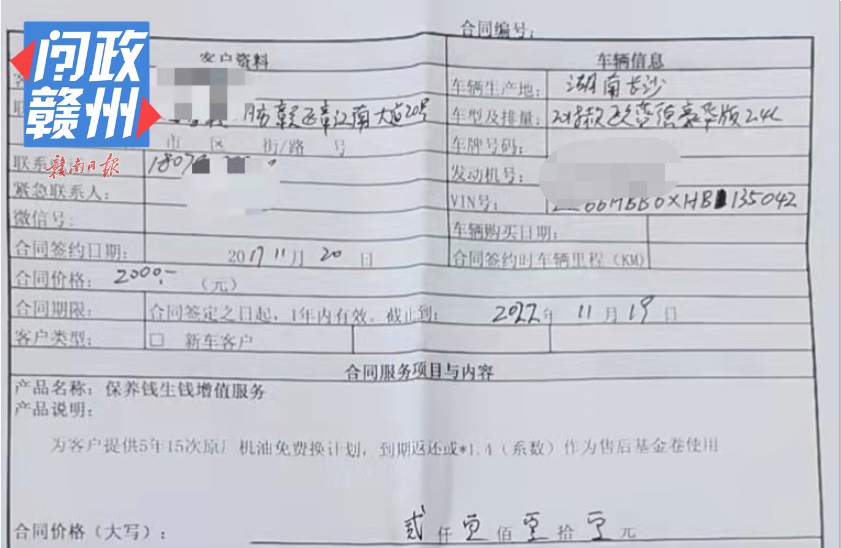 合同编号:
问政
赣州
赣南日报
客户资料
车辆信息
车辆生产地: 湖南长沙
赣县区章江南大道20号
车型及排量: 2018款 豪华版2.4L
市 区 街/路 号
车牌号码:
联系 1807
发动机号:
紧急联系人:
VIN号: 66MBB0XHB 135042
微信号:
车辆购买日期:
合同签约日期: 2017 11月 20 日
合同签约时车辆里程(KM)
合同价格: 2000.- (元)
合同期限: 合同签定之日起,1年内有效。截止到: 2022年 11月 19日
客户类型: □ 新车客户
合同服务项目与内容
产品名称: 保养钱生钱增值服务
产品说明:
为客户提供5年15次原厂机油免费换计划,到期返还或*1.4(系数)作为售后基金卷使用
合同价格(大写): 贰 仟 零 佰 零 拾 零 元